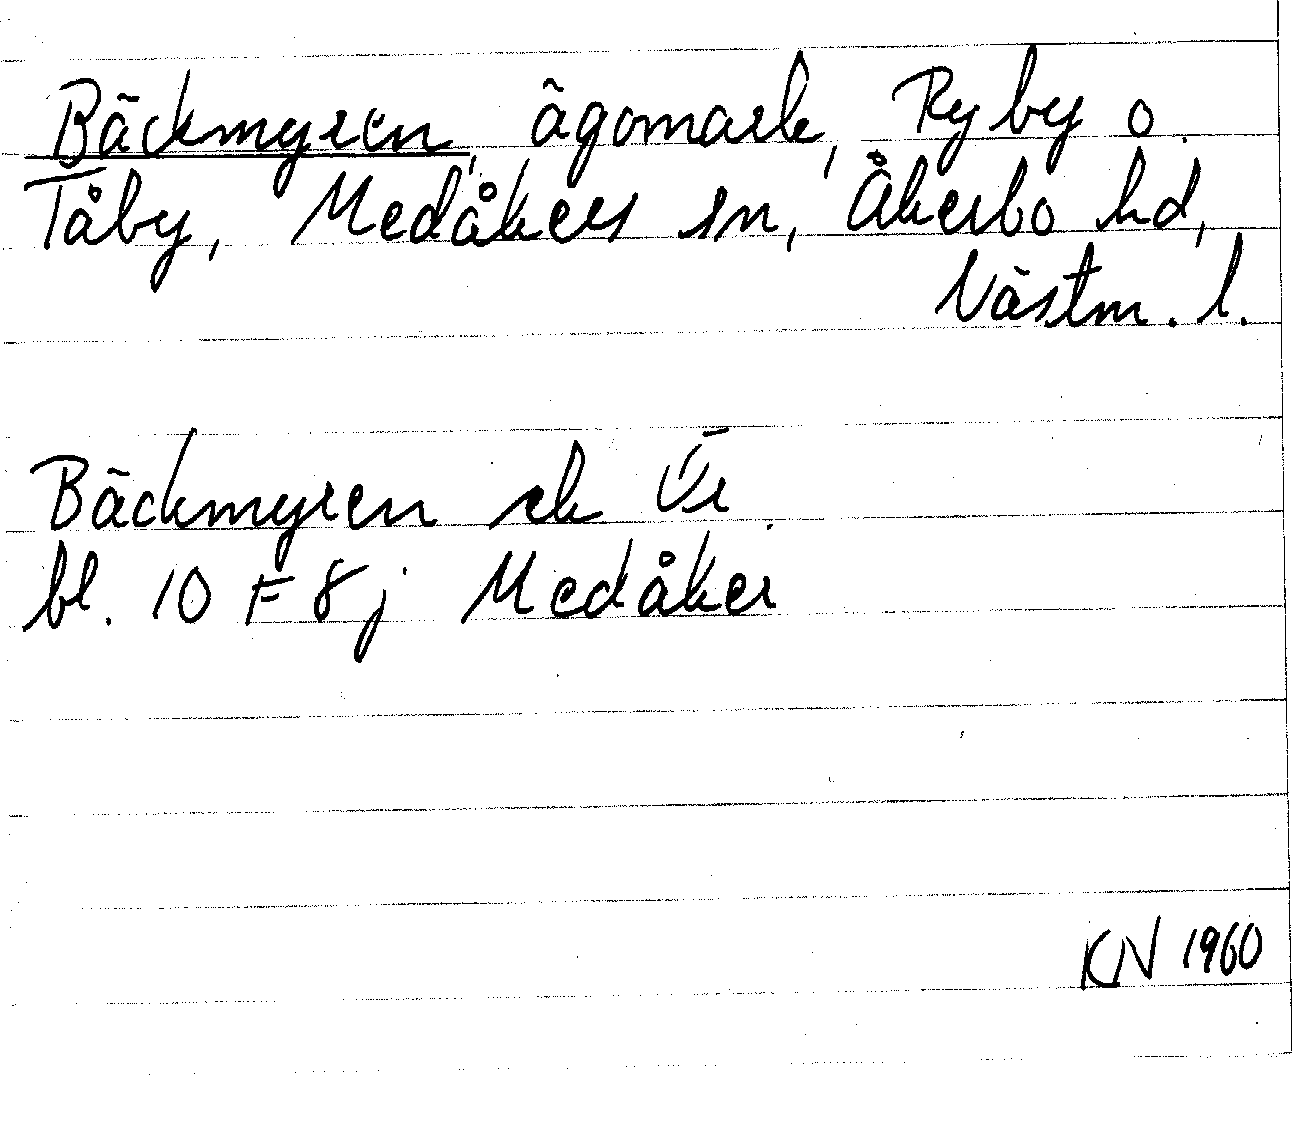 Bäckmyren, ägomark, Ryby o.
Tåby, Medåkers sn, Åkerbo hd,
Västm. l.
Bäckmyren ek Ur
bl. 10 F 8 j Medåker
KN 1960